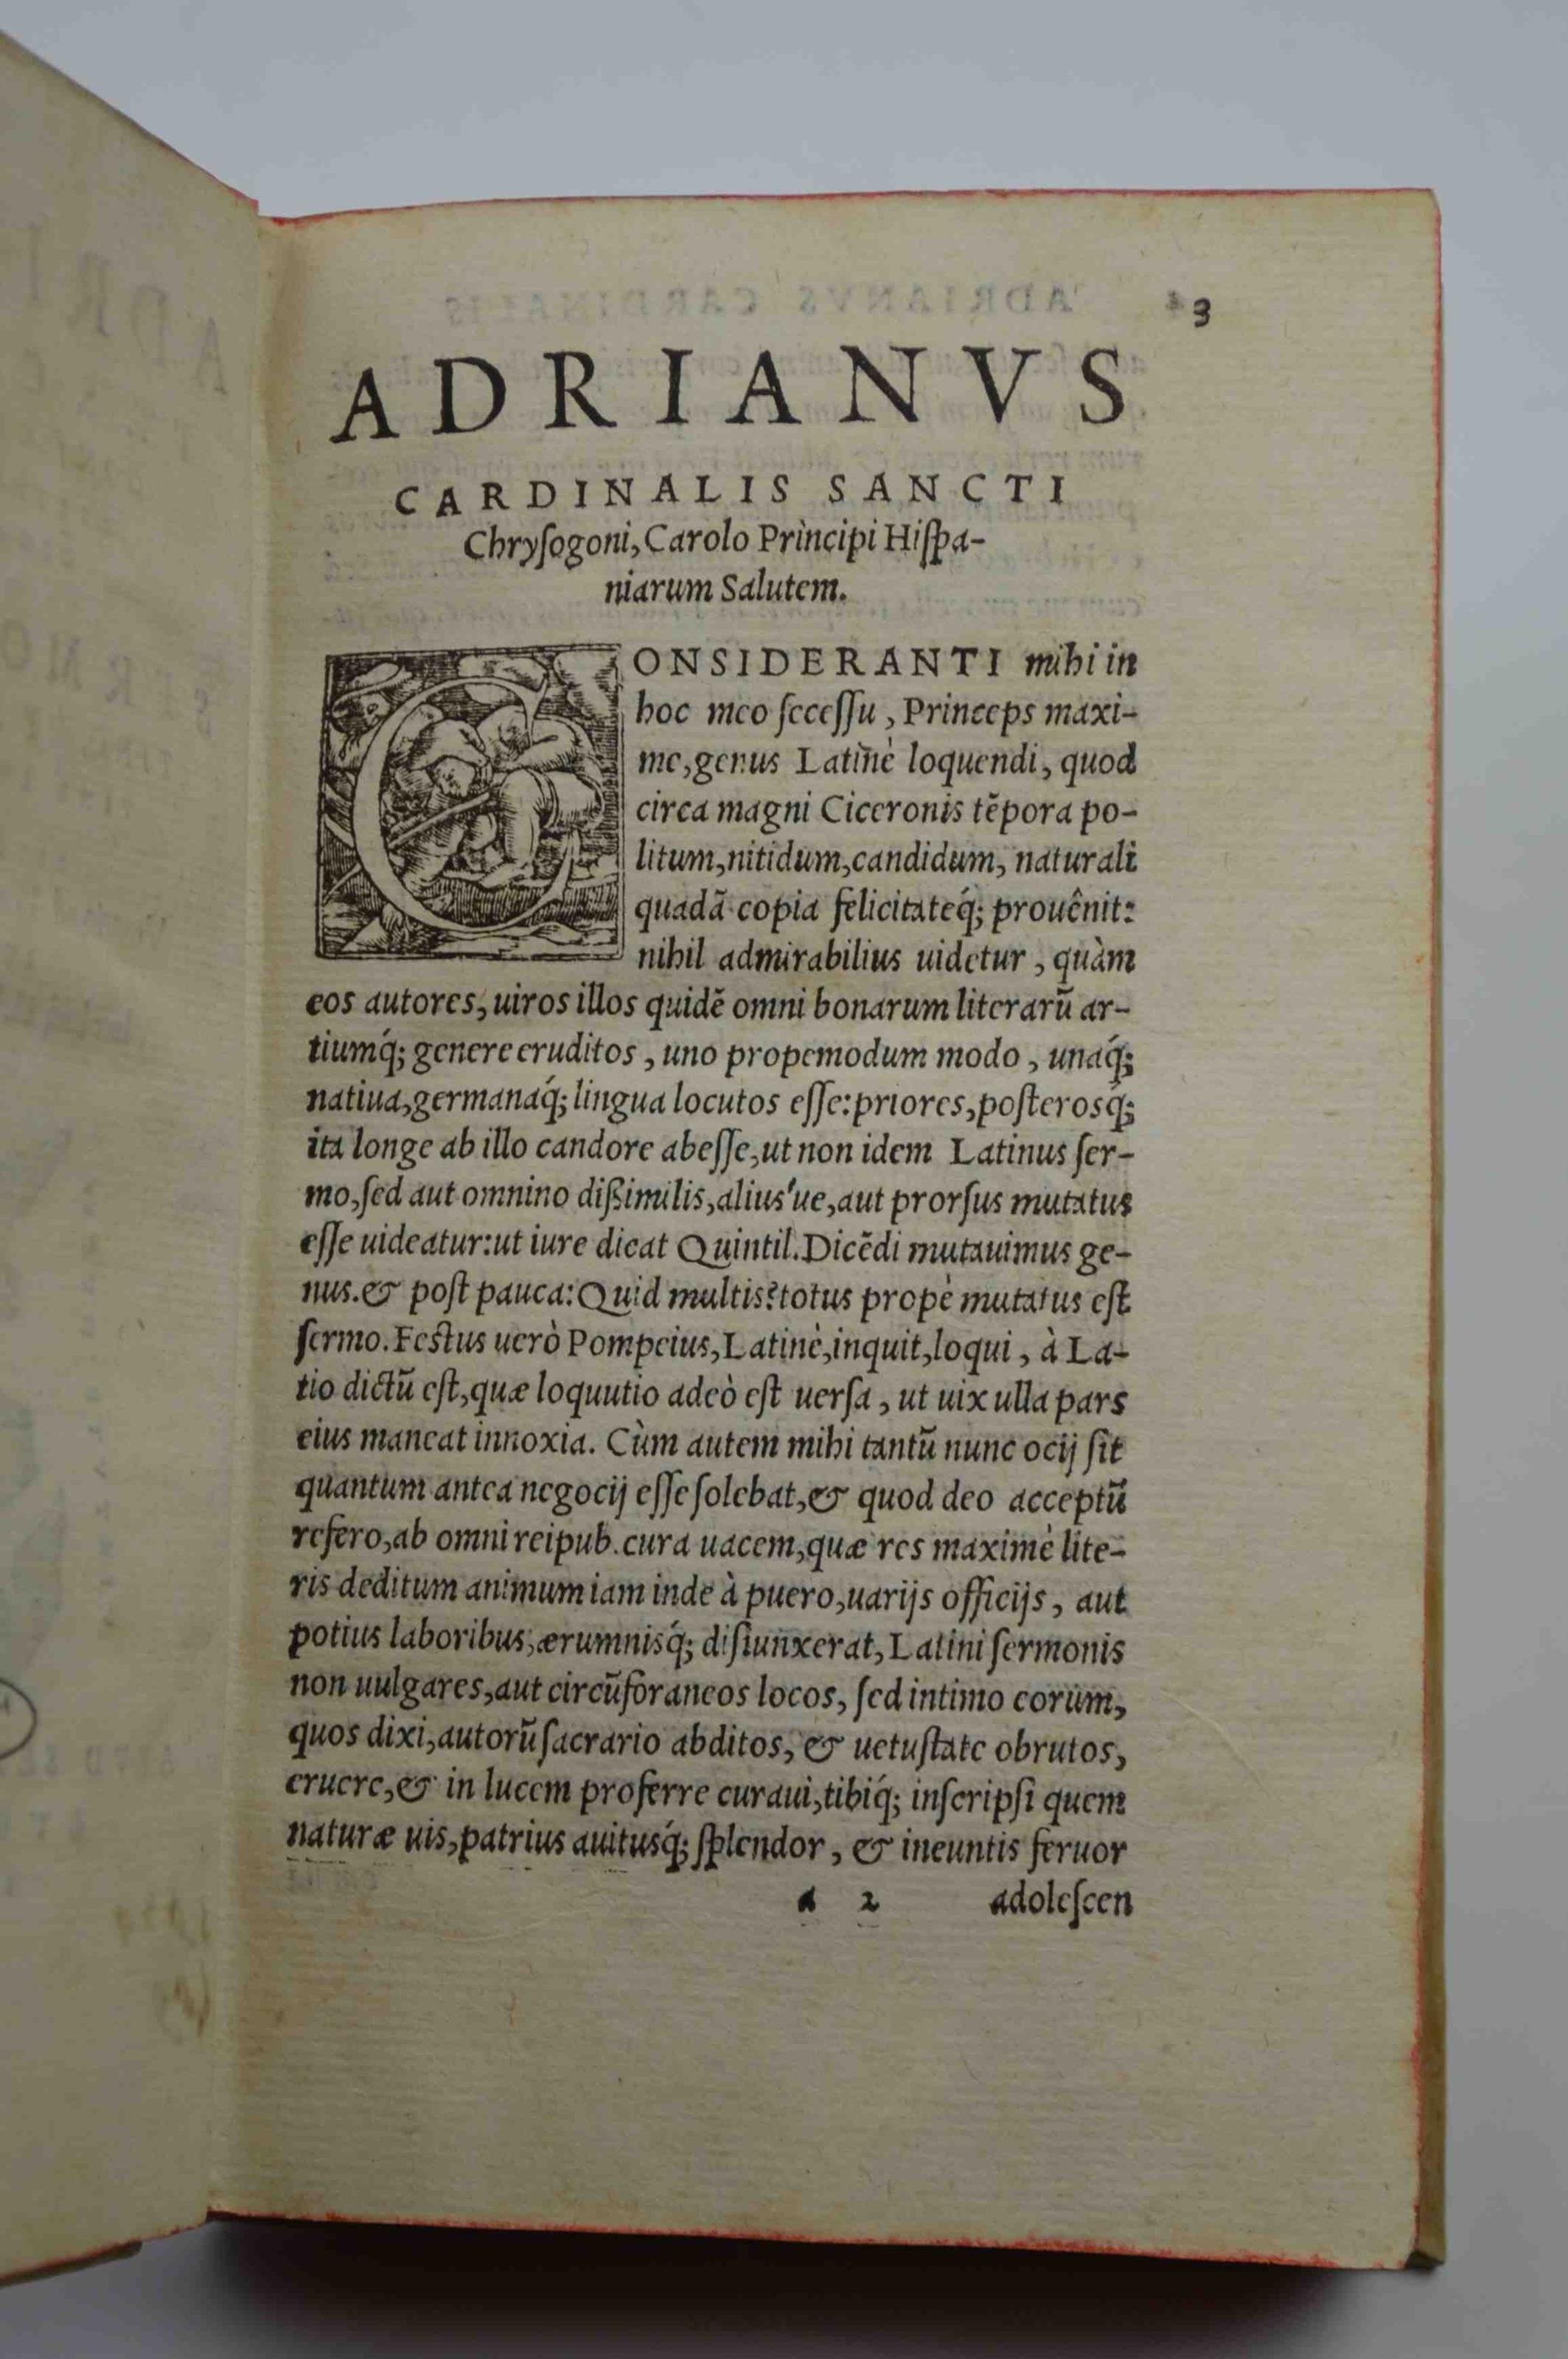 3
ADRIANVS
CARDINALIS SANCTI
Chryſogoni, Carolo Principi Hiſpa-
niarum Salutem.
CONSIDERANTI mihi in
hoc meo ſeceſſu, Princeps maxi-
me, genus Latinè loquendi, quod
circa magni Ciceronis tẽpora po-
litum, nitidum, candidum, naturali
quadã copia felicitateq́; prouênit:
nihil admirabilius uidetur, quàm
eos autores, uiros illos quidẽ omni bonarum literarũ ar-
tiumq́; genere eruditos, uno propemodum modo, unaq́;
natiua, germanaq́; lingua locutos eſſe: priores, poſterosq́;
ita longe ab illo candore abeſſe, ut non idem Latinus ſer-
mo, ſed aut omnino dißimilis, alius'ue, aut prorſus mutatus
eſſe uideatur: ut iure dicat Quintil. Dicẽdi mutauimus ge-
nus. & poſt pauca: Quid multis? totus propè mutatus eſt
ſermo. Feſtus uerò Pompeius, Latinè, inquit, loqui, à La-
tio dictũ eſt, quæ loquutio adeò eſt uerſa, ut uix ulla pars
eius maneat innoxia. Cùm autem mihi tantũ nunc ocij ſit
quantum antea negocij eſſe ſolebat, & quod deo acceptũ
refero, ab omni reipub. cura uacem, quæ res maximè lite-
ris deditum animum iam inde à puero, uarijs officijs, aut
potius laboribus, ærumnisq́; diſiunxerat, Latini ſermonis
non uulgares, aut circũforaneos locos, ſed intimo eorum,
quos dixi, autorũ ſacrario abditos, & uetuſtate obrutos,
eruere, & in lucem proferre curaui, tibiq́; inſcripſi quem
naturæ uis, patrius auitusq́; ſplendor, & ineuntis feruor
a 2 adoleſcen